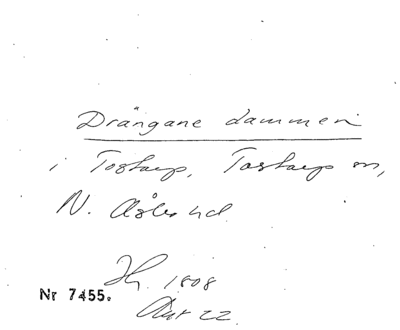 Drängane dammen
i Tostarp, Tostarp sn,
N. Åsbo hd.
1808
Nr 7455.
22